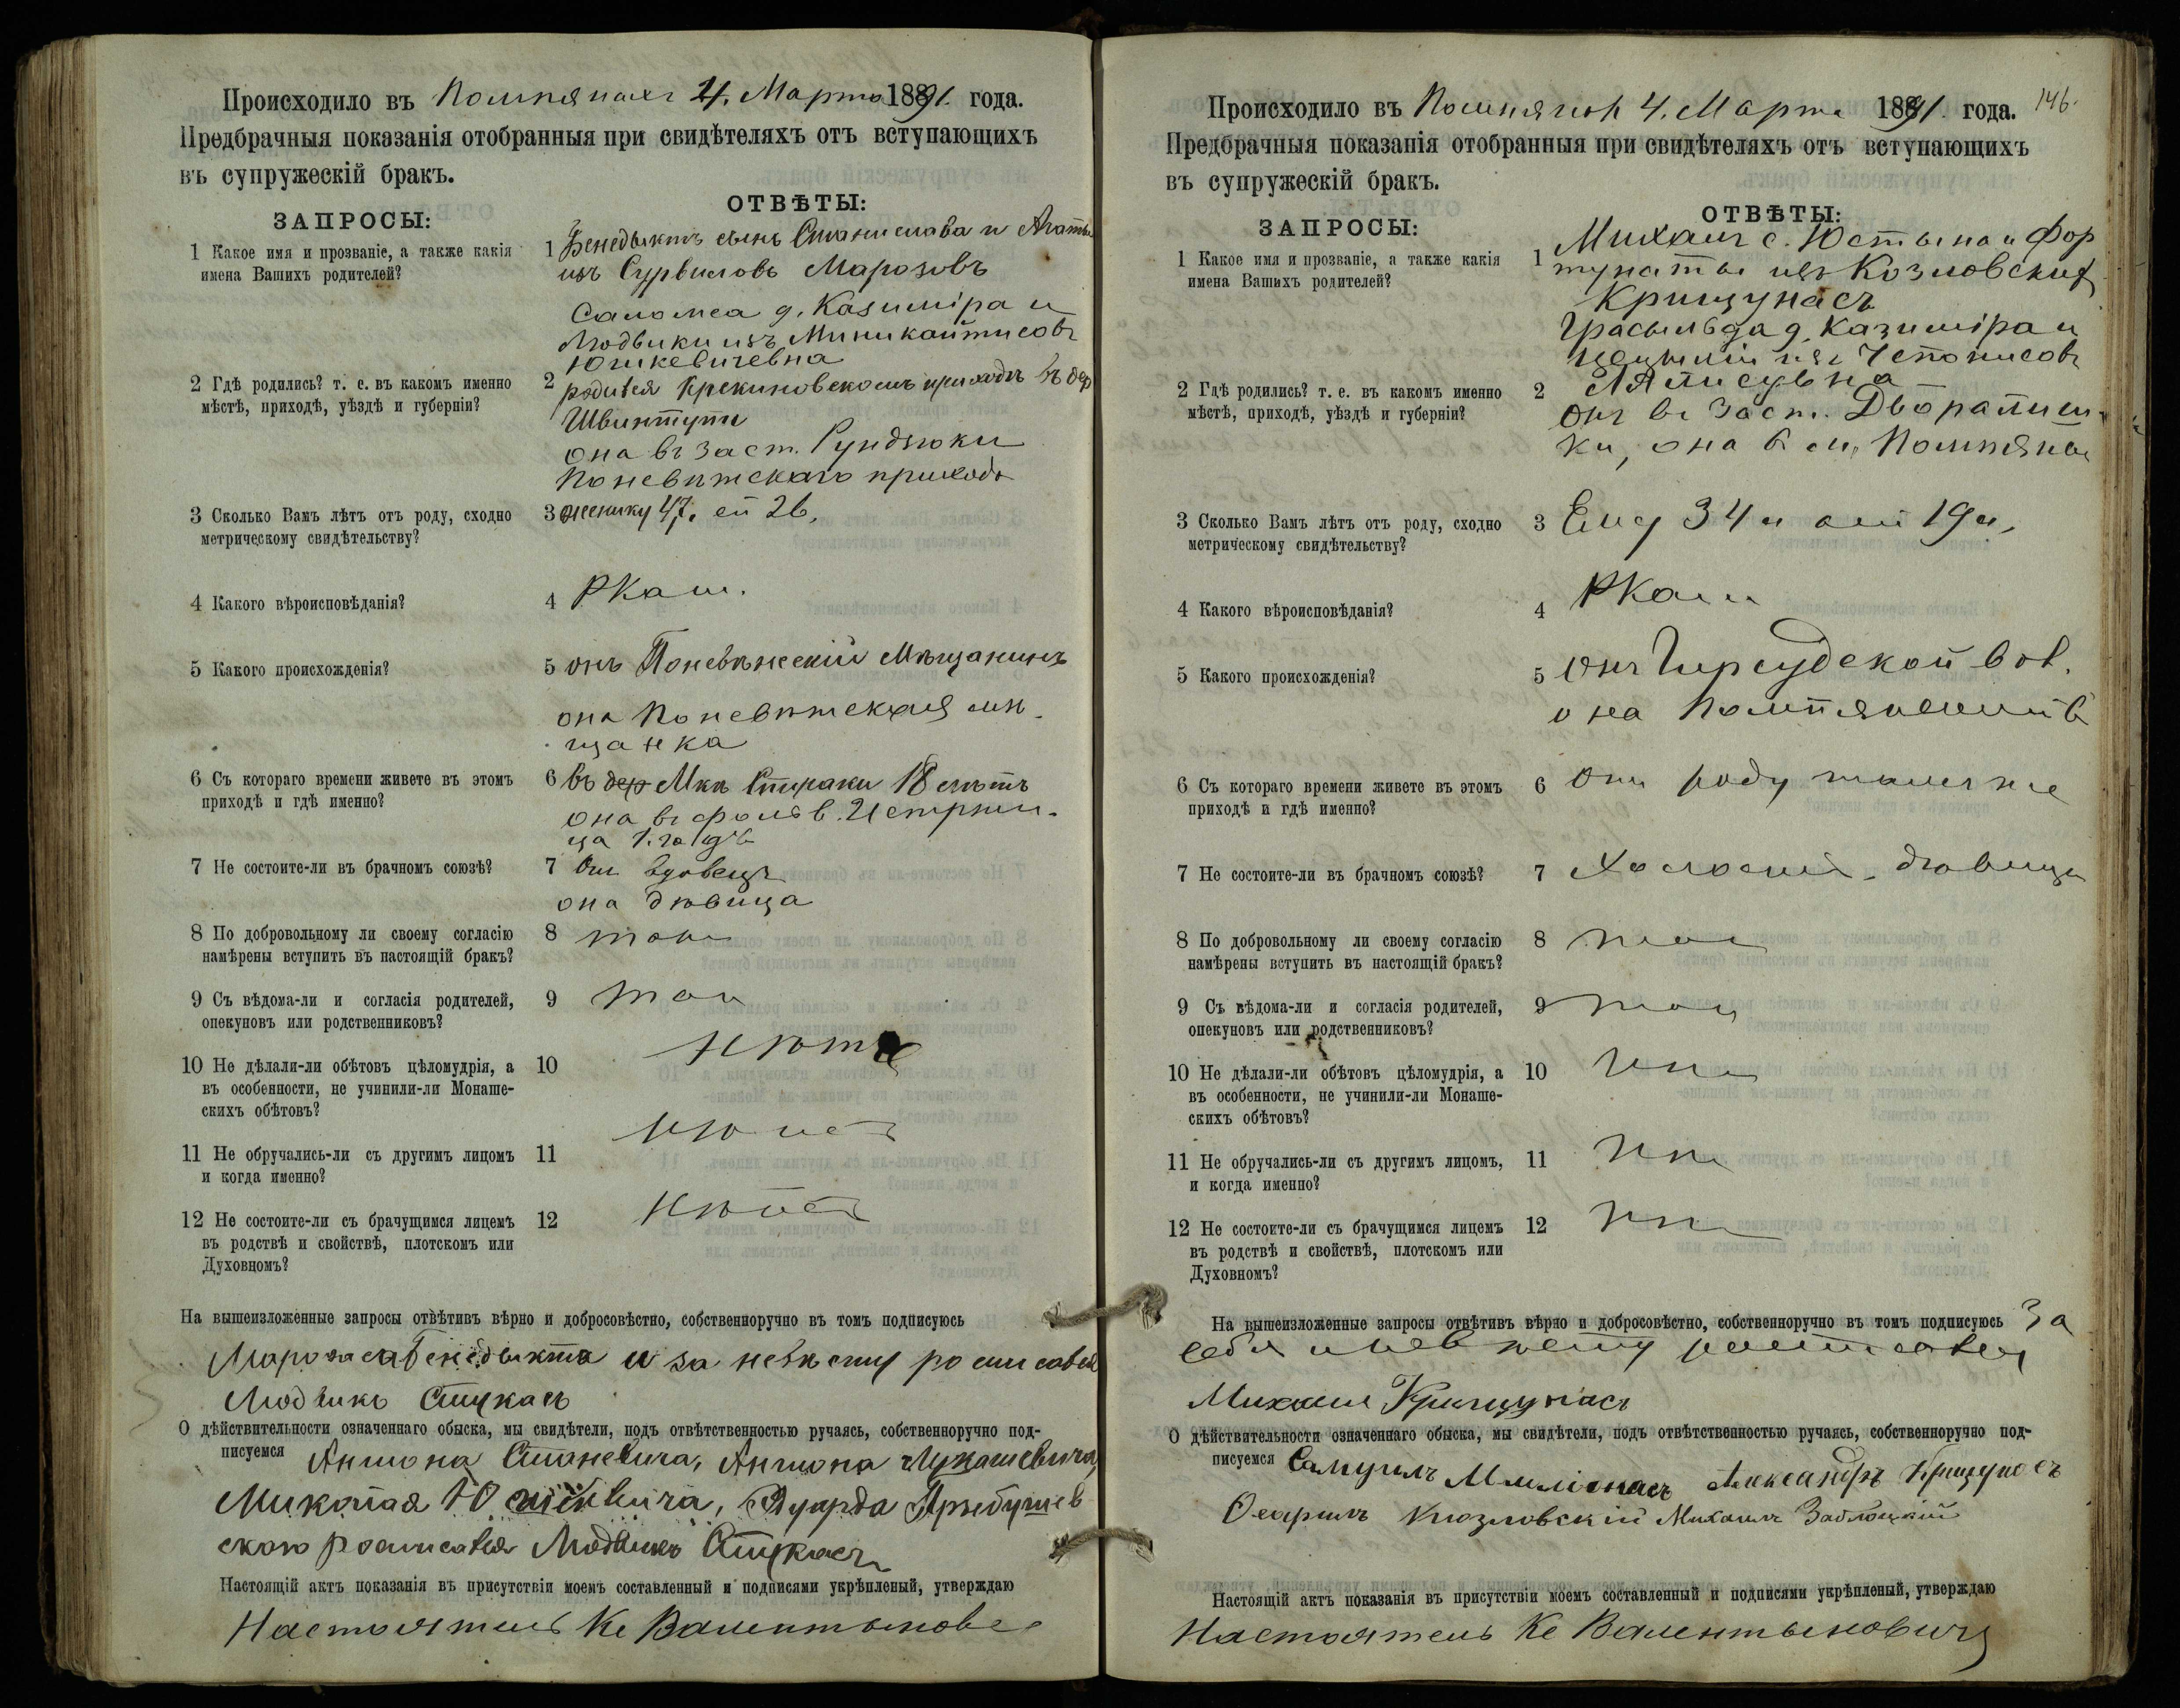 Происходило въ Помпянахъ 4. Марта 1891. года.
Предбрачныя показанія отобранныя при свидѣтеляхъ отъ вступающихъ
въ супружескій бракъ.
ЗАПРОСЫ:
ОТВѢТЫ:
1 Какое имя и прозваніе, а также какія
имена Вашихъ родителей?
1 Бенедыктъ сынъ Станислава и Агаты
изъ Сурвиловъ Марозовъ
Саломеа д. Казиміра и
Людвики изъ Миникайтисовъ
Юшкевичевна
2 Гдѣ родились? т. е. въ какомъ именно
мѣстѣ, приходѣ, уѣздѣ и губерніи?
2 родился Крекиновскомъ приходѣ въ дер
Швинтупи
она въ заст. Рундзюки
Поневѣжскаго прихода
3 Сколько Вамъ лѣтъ отъ роду, сходно
метрическому свидѣтельству?
3 жениху 47. ей 26.
4 Какого вѣроисповѣданія?
4 РКат.
5 Какого происхожденія?
5 онъ Поневѣжскій Мѣщанинъ
она Поневѣжская мѣ-
щанка
6 Съ котораго времени живете въ этомъ
приходѣ и гдѣ именно?
6 въ дер Мкѣ Стираки 18 лѣтъ
она въ фольв.
ца 1. годъ
7 Не состоите-ли въ брачномъ союзѣ?
7 Онъ вдовецъ
она дѣвица
8 По добровольному ли своему согласію
намѣрены вступить въ настоящій бракъ?
8 такъ
9 Съ вѣдома-ли и согласія родителей,
опекуновъ или родственниковъ?
9 такъ
10 Не дѣлали-ли обѣтовъ цѣломудрія, а
въ особенности, не учинили-ли Монаше-
скихъ обѣтовъ?
10 нѣтъ
11 Не обручались-ли съ другимъ лицомъ
и когда именно?
11 нѣтъ
12 Не состоите-ли съ брачущимся лицемъ
въ родствѣ и свойствѣ, плотскомъ или
Духовномъ?
12 нѣтъ
На вышеизложенные запросы отвѣтивъ вѣрно и добросовѣстно, собственноручно въ томъ подписуюсь
Бенедыкта и за невѣсту росписался
Людвикъ Стукасъ
О дѣйствительности означеннаго обыска, мы свидѣтели, подъ отвѣтственностью ручаясь, собственноручно под-
писуемся Антона Станевича, Антона Лукашевича,
Миколая Юшкевича, Эдуарда Пржебушев
скаго росписался Людвикъ Стукасъ
Настоящій актъ показанія въ присутствіи моемъ составленный и подписями укрѣпленый, утверждаю
Настоятель Кс Валентынович
146.
Происходило въ Помпянахъ 4. Марта 1891. года.
Предбрачныя показанія отобранныя при свидѣтеляхъ отъ вступающихъ
въ супружескій бракъ.
ЗАПРОСЫ:
ОТВѢТЫ:
1 Какое имя и прозваніе, а также какія
имена Вашихъ родителей?
1 Михаилъ с. Юстына и Фор
тунаты изъ Козловскихъ
Крищунасъ
Грасыльда д. Казиміра и
изъ
2 Гдѣ родились? т. е. въ какомъ именно
мѣстѣ, приходѣ, уѣздѣ и губерніи?
2 онъ въ заст. Дворалиш-
ки, она в м. Помпяны
3 Сколько Вамъ лѣтъ отъ роду, сходно
метрическому свидѣтельству?
3 Ему 34 л ей 19 л.
4 Какого вѣроисповѣданія?
4 РКат
5 Какого происхожденія?
5 онъ Гирсудской вол.
она Помпянской в
6 Съ котораго времени живете въ этомъ
приходѣ и гдѣ именно?
6 отъ роду тамъ же
7 Не состоите-ли въ брачномъ союзѣ?
7 Холостой. дѣвица
8 По добровольному ли своему согласію
намѣрены вступить въ настоящій бракъ?
8 такъ
9 Съ вѣдома-ли и согласія родителей,
опекуновъ или родственниковъ?
9 такъ
10 Не дѣлали-ли обѣтовъ цѣломудрія, а
въ особенности, не учинили-ли Монаше-
скихъ обѣтовъ?
10 нѣтъ
11 Не обручались-ли съ другимъ лицомъ,
и когда именно?
11 нѣтъ
12 Не состоите-ли съ брачущимся лицемъ
въ родствѣ и свойствѣ, плотскомъ или
Духовномъ?
12 нѣтъ
На вышеизложенные запросы отвѣтивъ вѣрно и добросовѣстно, собственноручно въ томъ подписуюсь За
себя и невѣсту росписался
Михаилъ Крищунасъ
О дѣйствительности означеннаго обыска, мы свидѣтели, подъ отвѣтственностью ручаясь, собственноручно под-
писуемся Самуилъ Александръ Крищунасъ
Козловскій Михаилъ Заблоцкій
Настоящій актъ показанія въ присутствіи моемъ составленный и подписями укрѣпленый, утверждаю
Настоятель Кс Валентыновичъ